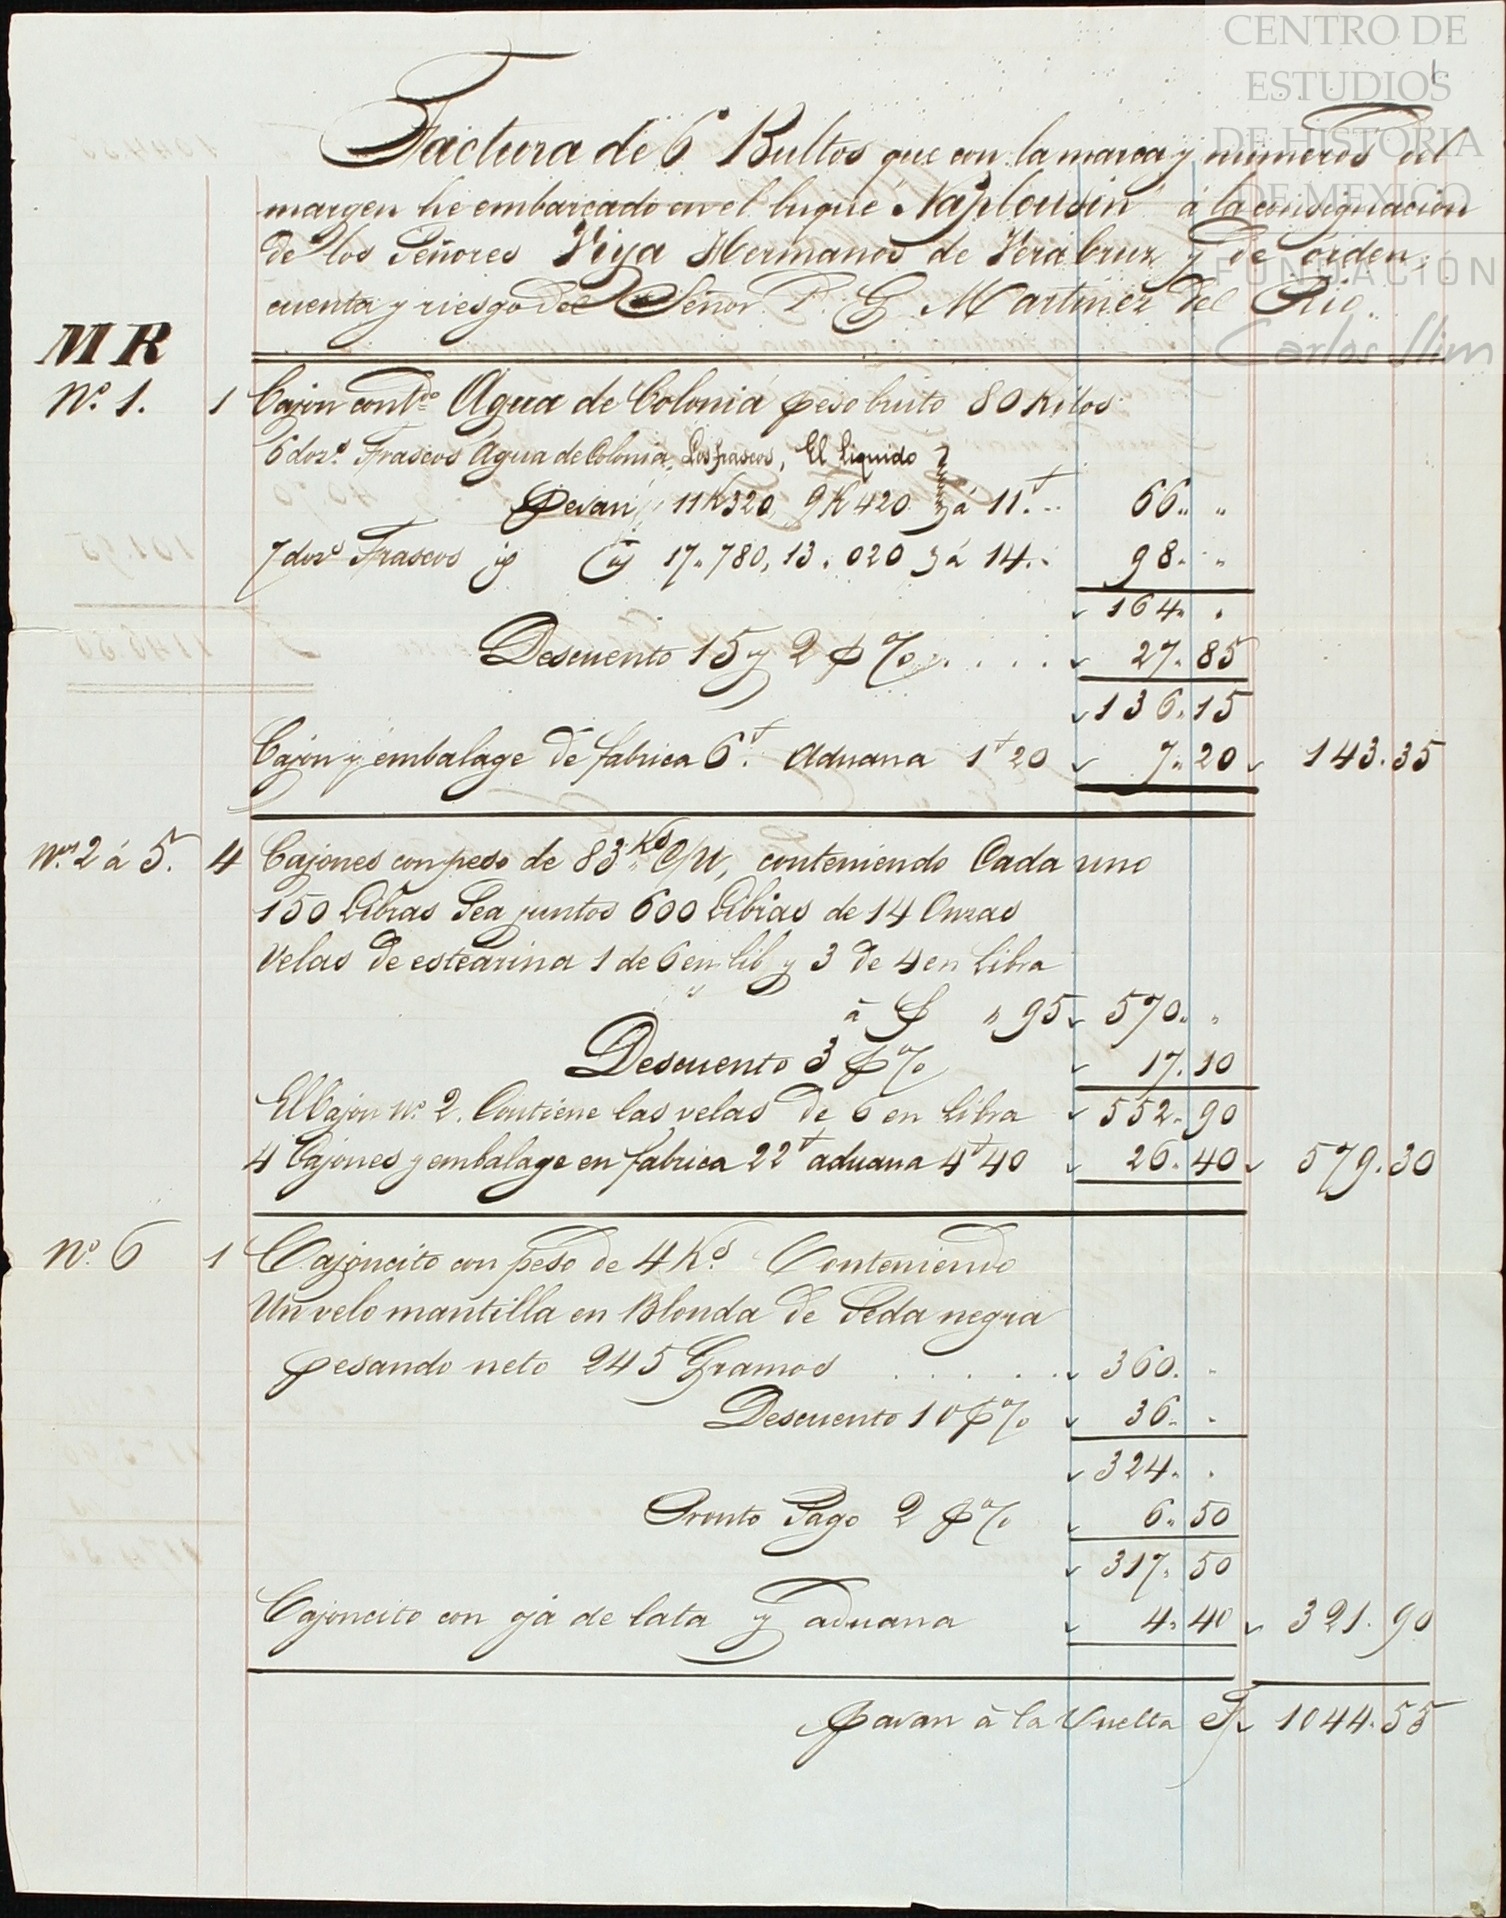 CENTRO DE
ESTUDIOS
DE HISTORIA
DE MEXICO
FUNDACIÓN
Carlos Slim
Factura de 6 Bultos que con la marca y numeros del
margen he embarcado en el buque "Naplousin" á la consignacion
de los Señores Viya Hermanos de Vera Cruz y de orden,
cuenta y riesgo del Señor P. G. Martinez del Rio.
MR
Nº 1. 1 Cajon contdo Agua de Colonia peso bruto 80 Kilos
6 dozs. Frascos Agua de Colonia, Los frascos, El Liquido
Pesan 11K320, 9K420 á 11.f 66 " "
7 dozs Frascos 17,780, 13.020 á 14. 98 " "
164 " "
Descuento 15 y 2 p% 27.85
136.15
Cajon y embalage de fabrica 6f. Aduana 1f20 7.20 143.35
Nos 2 á 5. 4 Cajones con peso de 83 Ks C/U, conteniendo Cada uno
150 Libras Sea juntos 600 Libras de 14 Onzas
Velas de estearina 1 de 6 en lib y 3 de 4 en Libra
á f " 95 570 " "
Descuento 3 p% 17.10
El Cajon Nº 2. Contiene las velas de 6 en Libra 552.90
4 Cajones y embalage en fabrica 22f aduana 4f40 26.40 579.30
Nº 6 1 Cajoncito con peso de 4 Ks. Conteniendo
Un velo mantilla en Blonda de Seda negra
pesando neto 245 Gramos . . . . . 360. "
Descuento 10 p% 36 " "
324 " "
Pronto Pago 2 p% 6.50
317.50
Cajoncito con oja de lata y aduana 4.40 321.90
Pasan á la Vuelta F 1044.55